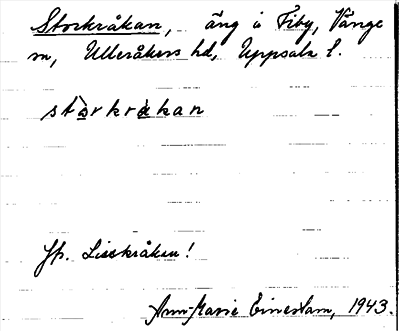 Storkråkan, äng å Fiby, Vänge
sn, Ulleråkers hd, Uppsala l.
stòrkràkan
Jfr. Lisskråkan!
Ann-Marie Einestam, 1943.